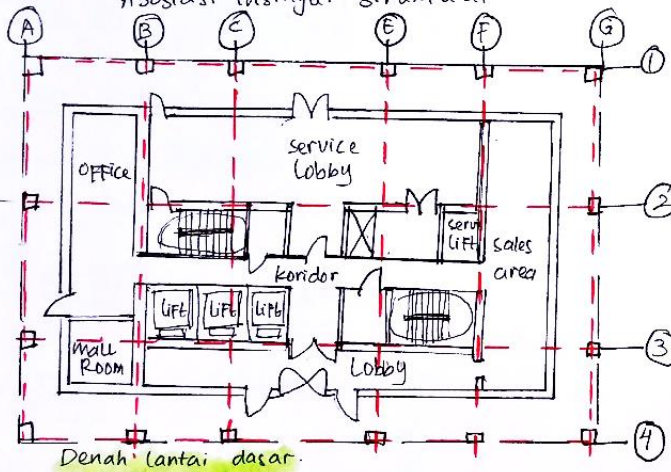 A
B
C
E
F
G
1
OFFICE
service
Lobby
2
serv
Lift
sales
area
Koridor
Lift
Lift
Lift
3
Mail
Room
Lobby
4
Denah lantai dasar.